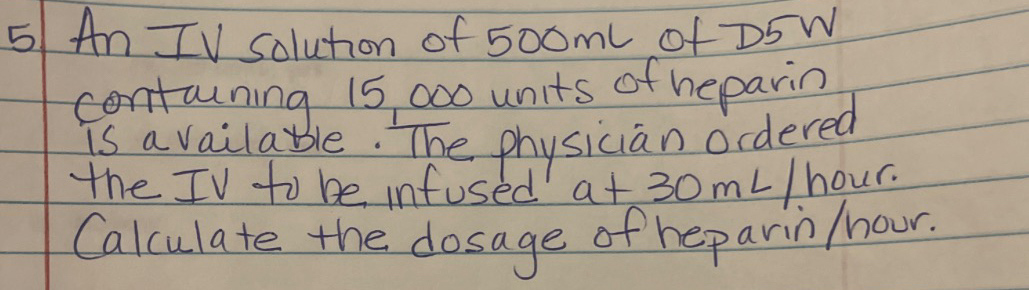 5) An IV solution of 500mL of D5W
containing 15,000 units of heparin
is available. The physician ordered
the IV to be infused at 30mL/hour.
Calculate the dosage of heparin/hour.